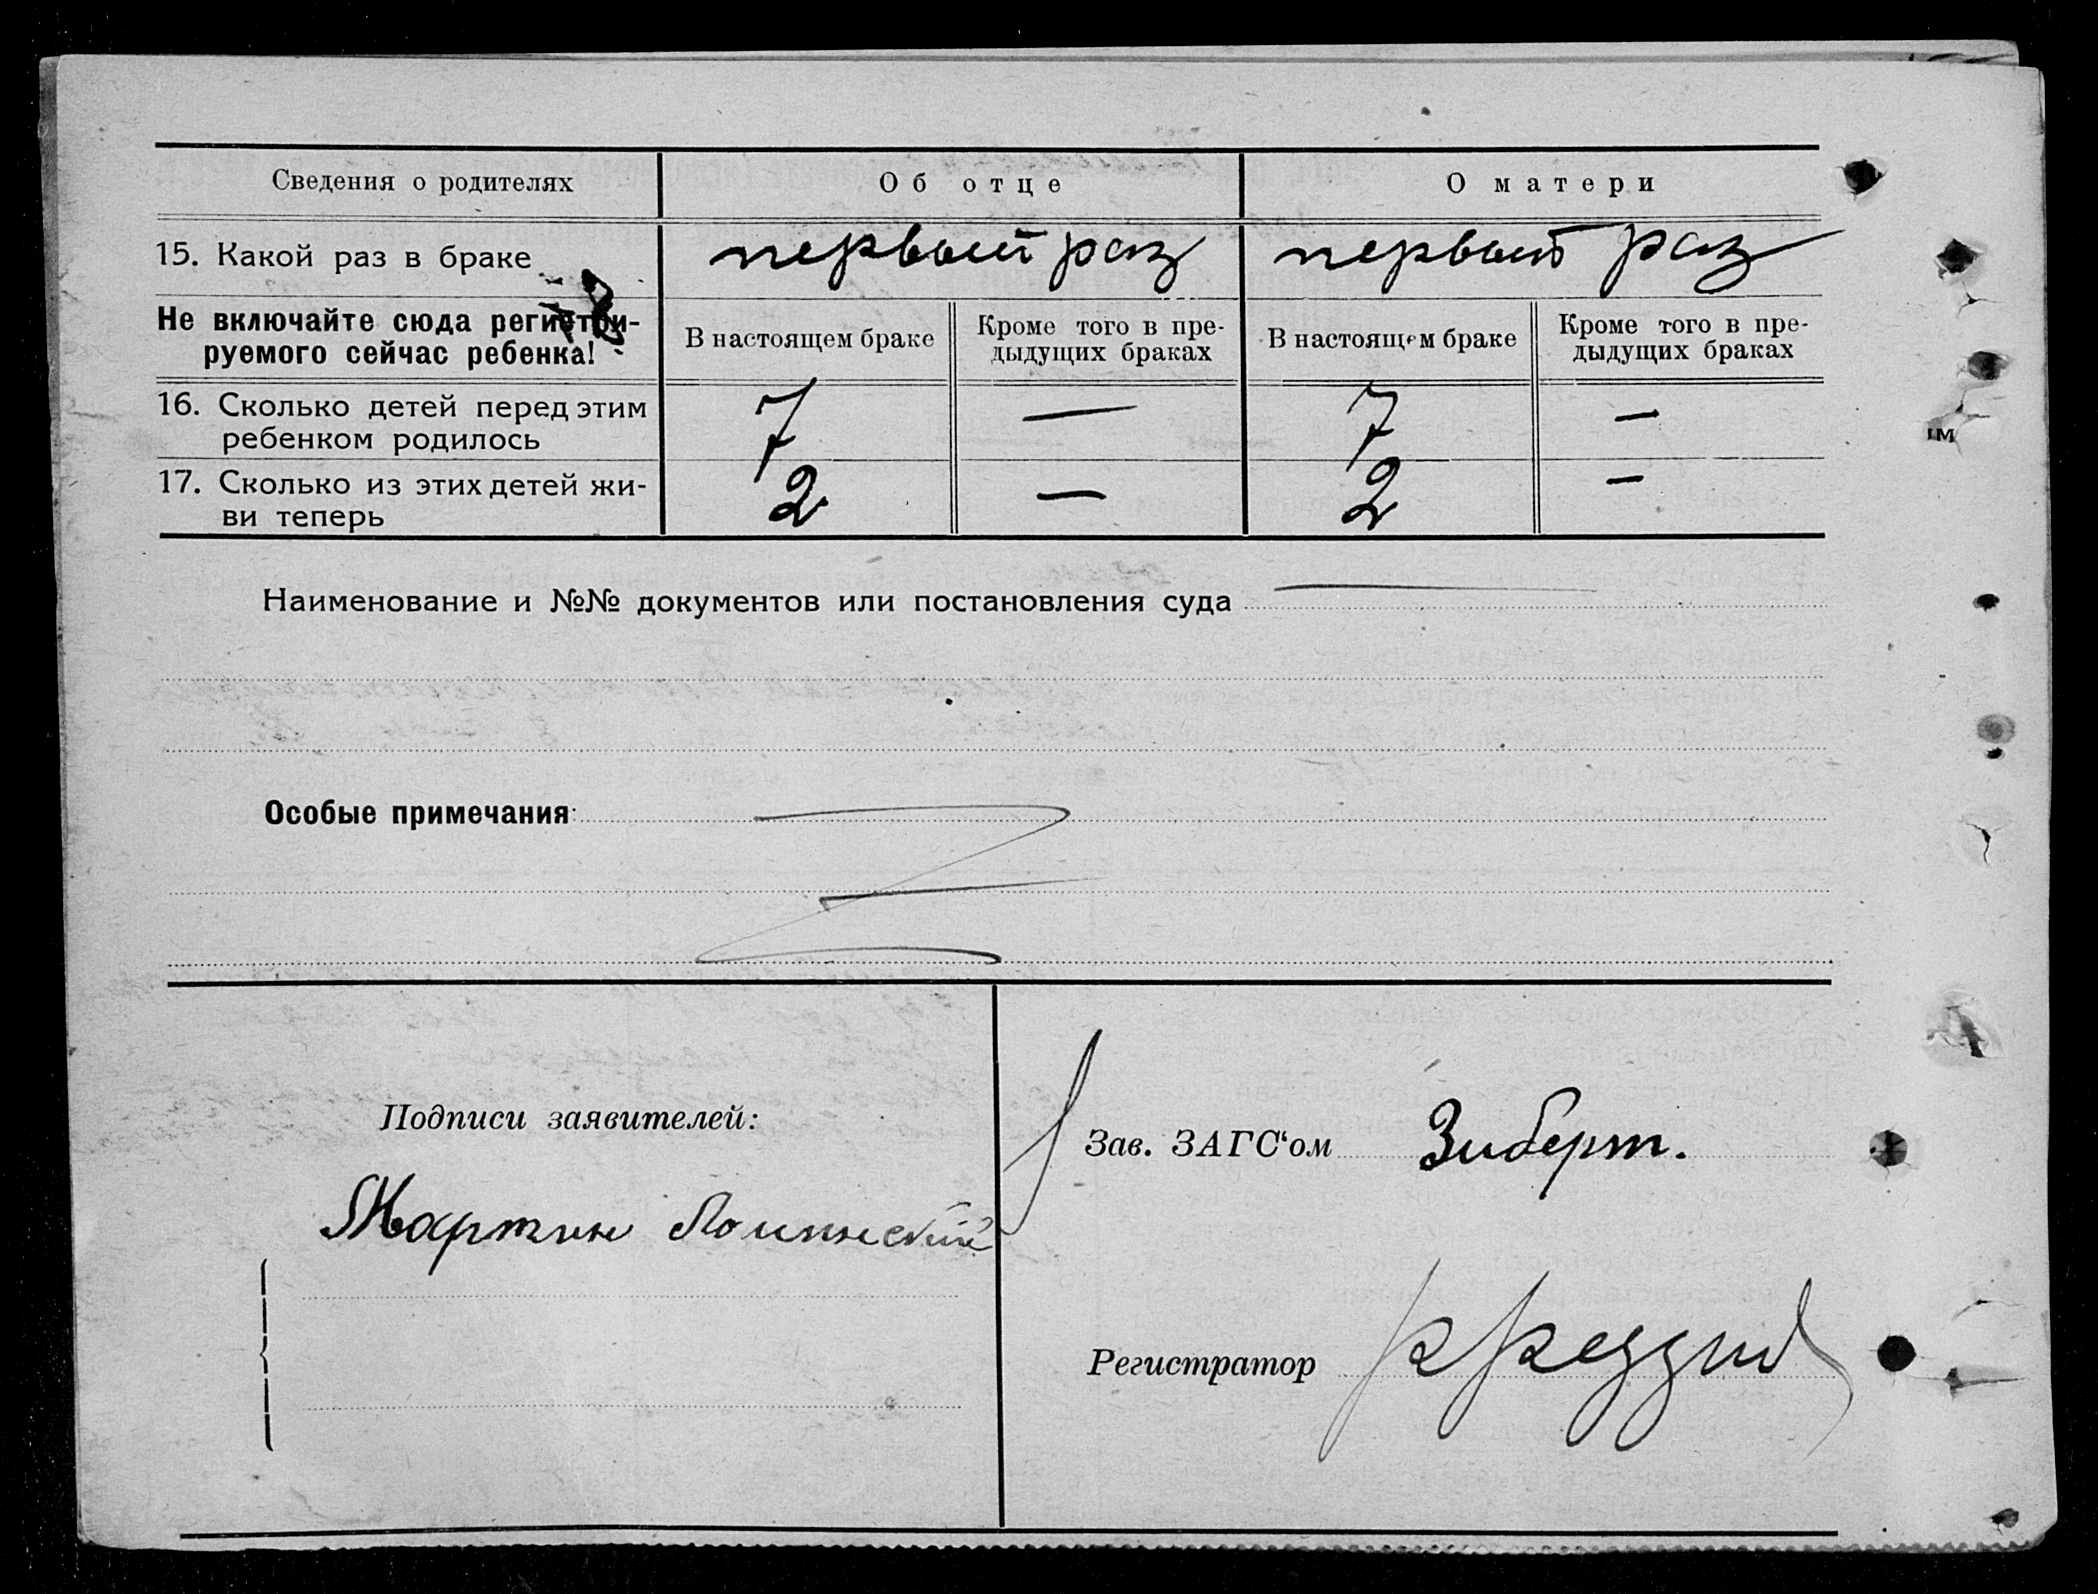 Сведения о родителях
Об отце
О матери
15. Какой раз в браке
первый раз
первый раз
Не включайте сюда регистри-
руемого сейчас ребенка!
В настоящем браке
Кроме того в пре-
дыдущих браках
В настоящем браке
Кроме того в пре-
дыдущих браках
16. Сколько детей перед этим
ребенком родилось
7
—
7
—
17. Сколько из этих детей жи-
ви теперь
2
—
2
—
Наименование и №№ документов или постановления суда —
Особые примечания:
Подписи заявителей:
Зав. ЗАГС‘ом Зиберт.
Мартин
Регистратор